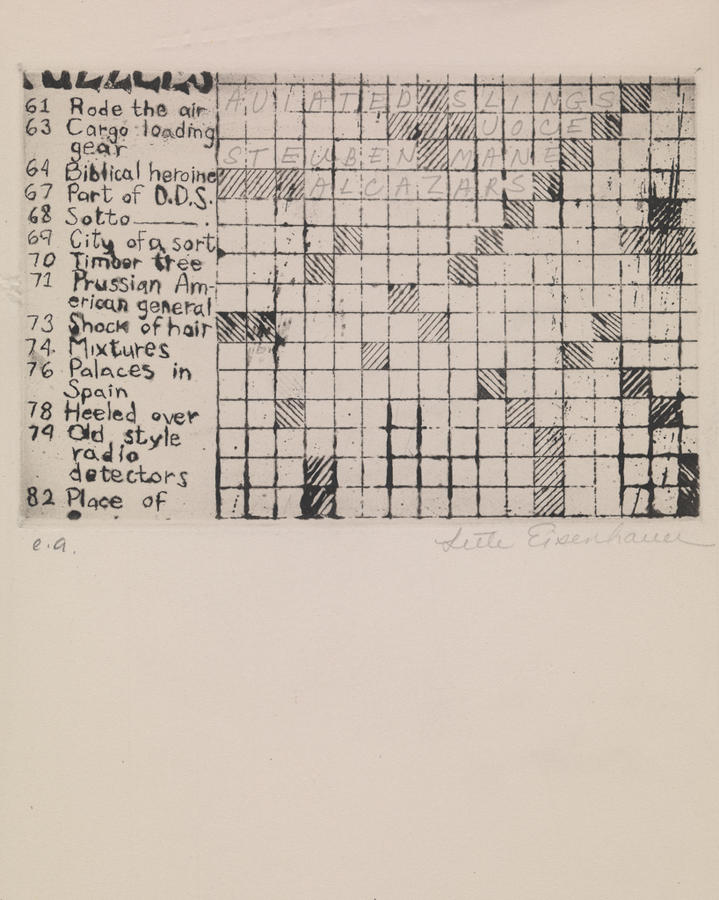 61 Rode the air
63 Cargo loading
gear
64 Biblical heroine
67 Part of D.D.S.
68 Sotto ____.
69 City of a sort
70 Timber tree
71 Prussian Am-
erican general
73 Shock of hair
74. Mixtures
76 Palaces in
Spain
78 Heeled over
79 Old style
radio
detectors
82 Place of
AVIATED SLINGS
VOCE
STEUBEN MANE
ALCAZARS
e.a.
Eisenhauer